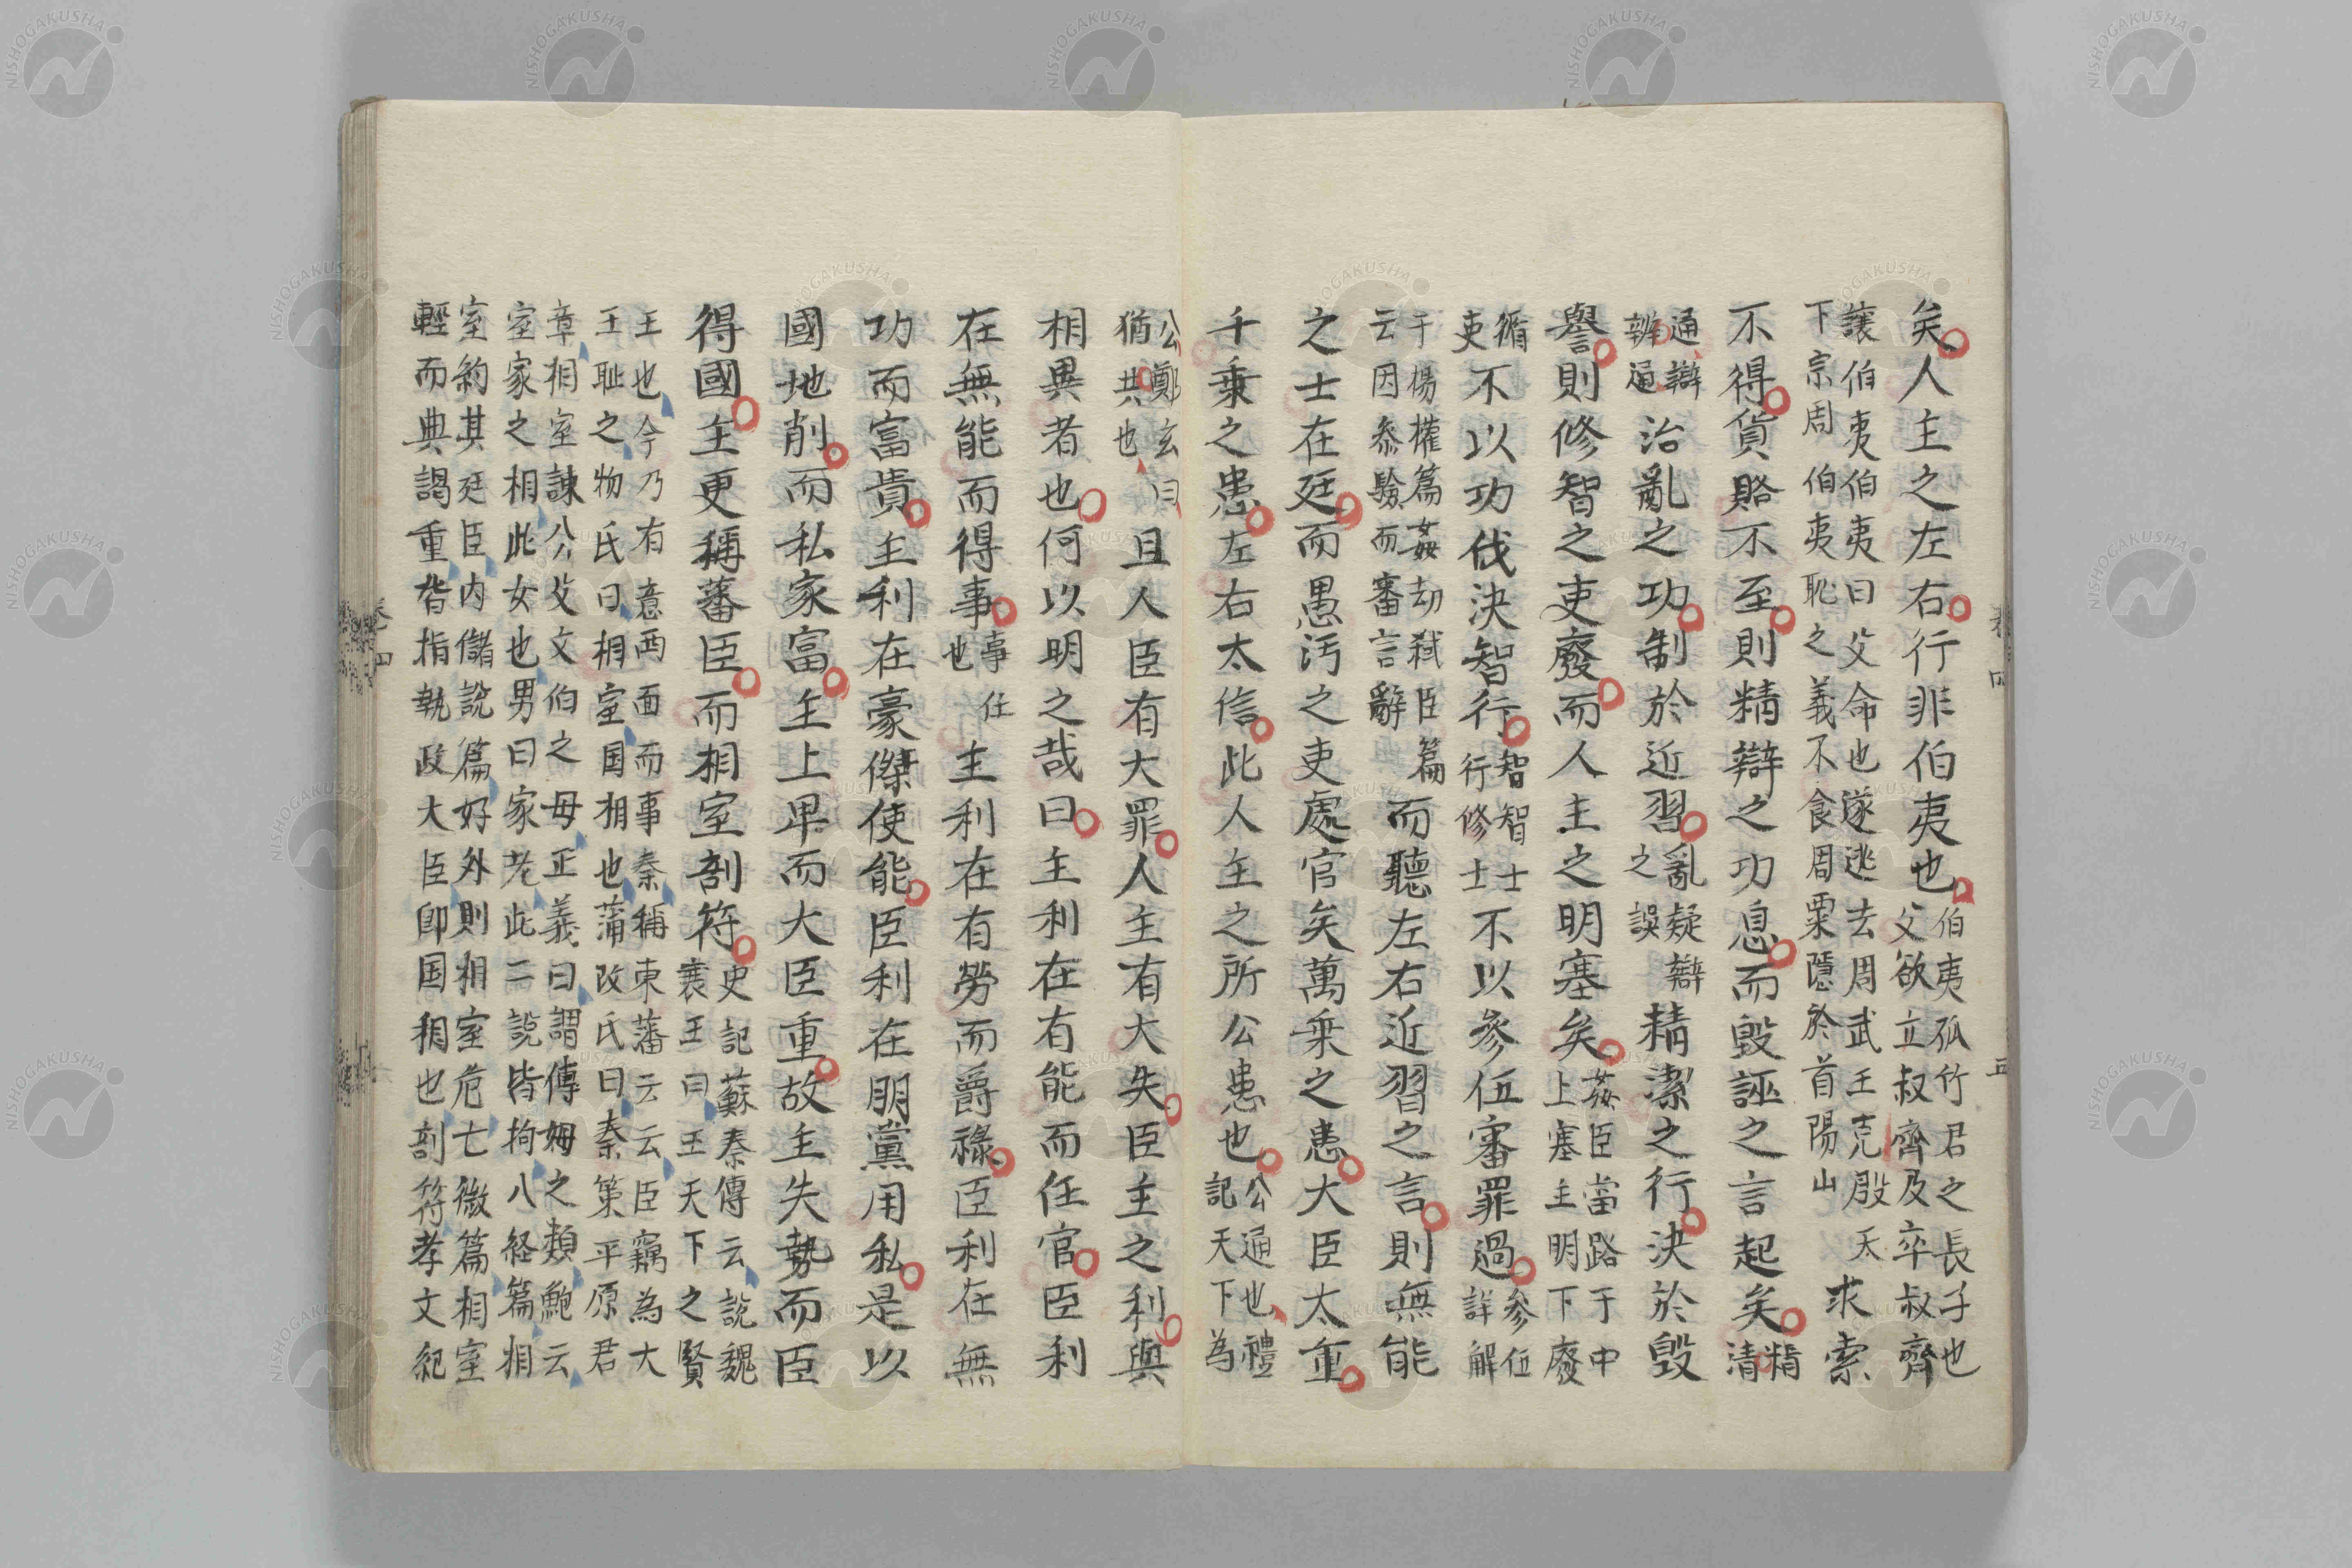 矣人主之左右行非伯夷也伯夷孤竹君之長子也父欲立叔齊及卒叔齊
讓伯夷伯夷曰父命也遂逃去周武王克殷天下宗周伯夷恥之義不食周粟隱於首陽山求索
不得貨賂不至則精辯之功息而毀誣之言起矣精清
通辯辨通治亂之功制於近習亂疑辯之誤精潔之行決於毀
譽則修智之吏廢而人主之明塞矣姦臣當路于中上塞主明下廢
循吏不以功伐決智行智智士行修士不以參伍審罪過參伍詳解
于楊權篇姦劫弒臣篇云因參驗而審言辭而聽左右近習之言則無能
之士在廷而愚汚之吏處官矣萬乗之患大臣太重
千乗之患左右太信此人主之所公患也公通也禮記天下為
公鄭玄曰猶共也且人臣有大罪人主有大失臣主之利與
相異者也何以明之哉曰主利在有能而任官臣利
在無能而得事事任也主利在有勞而爵祿臣利在無
功而富貴主利在豪傑使能臣利在朋黨用私是以
國地削而私家富主上卑而大臣重故主失勢而臣
得國主更稱藩臣而相室剖符史記蘇秦傳云說魏襄王曰王天下之賢
王也今乃有意西面而事秦稱東藩云云臣竊為大王恥之物氏曰相室国相也蒲改氏曰秦策平原君
章相室諫公父文伯之母正義曰謂傅姆之類鮑云室家之相此女也男曰家老此二說皆拘八経篇相
室約其廷臣内儲說篇好外則相室危亡徵篇相室輕而典謁重皆指執政大臣卽国相也剖符孝文紀
卷四
五
卷四